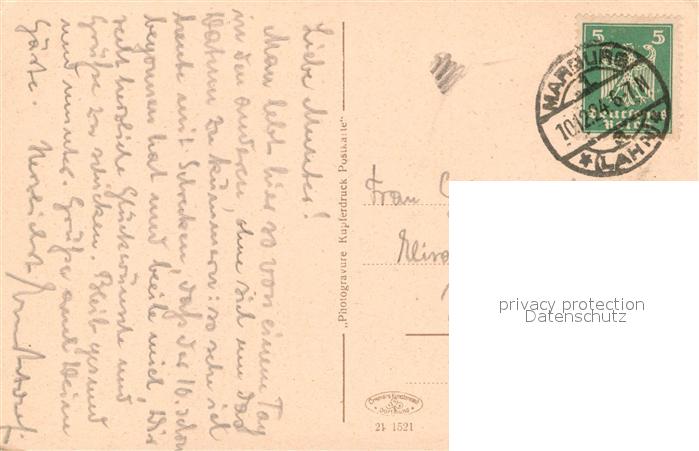 Liebe Martha!
Man lebt hier so von einem Tag
in den anderen, ohne sich um das
Datum zu kümmern: so sehe ich
heute mit Schrecken, daß der 10. schon
begonnen hat und beeile mich, Dir
recht herzliche Glückwünsche und
Grüße zu schicken. Bleib gesund
und munter. Grüße auch Deine
Gäste. Herzlichst
„Photogravure Kupferdruck Postkarte"
5 5
Deutsches
Reich
MARBURG
1
10.12.24.6-7 N
* (LAHN)
Frau
Dortmund
21 1521
privacy protection
Datenschutz